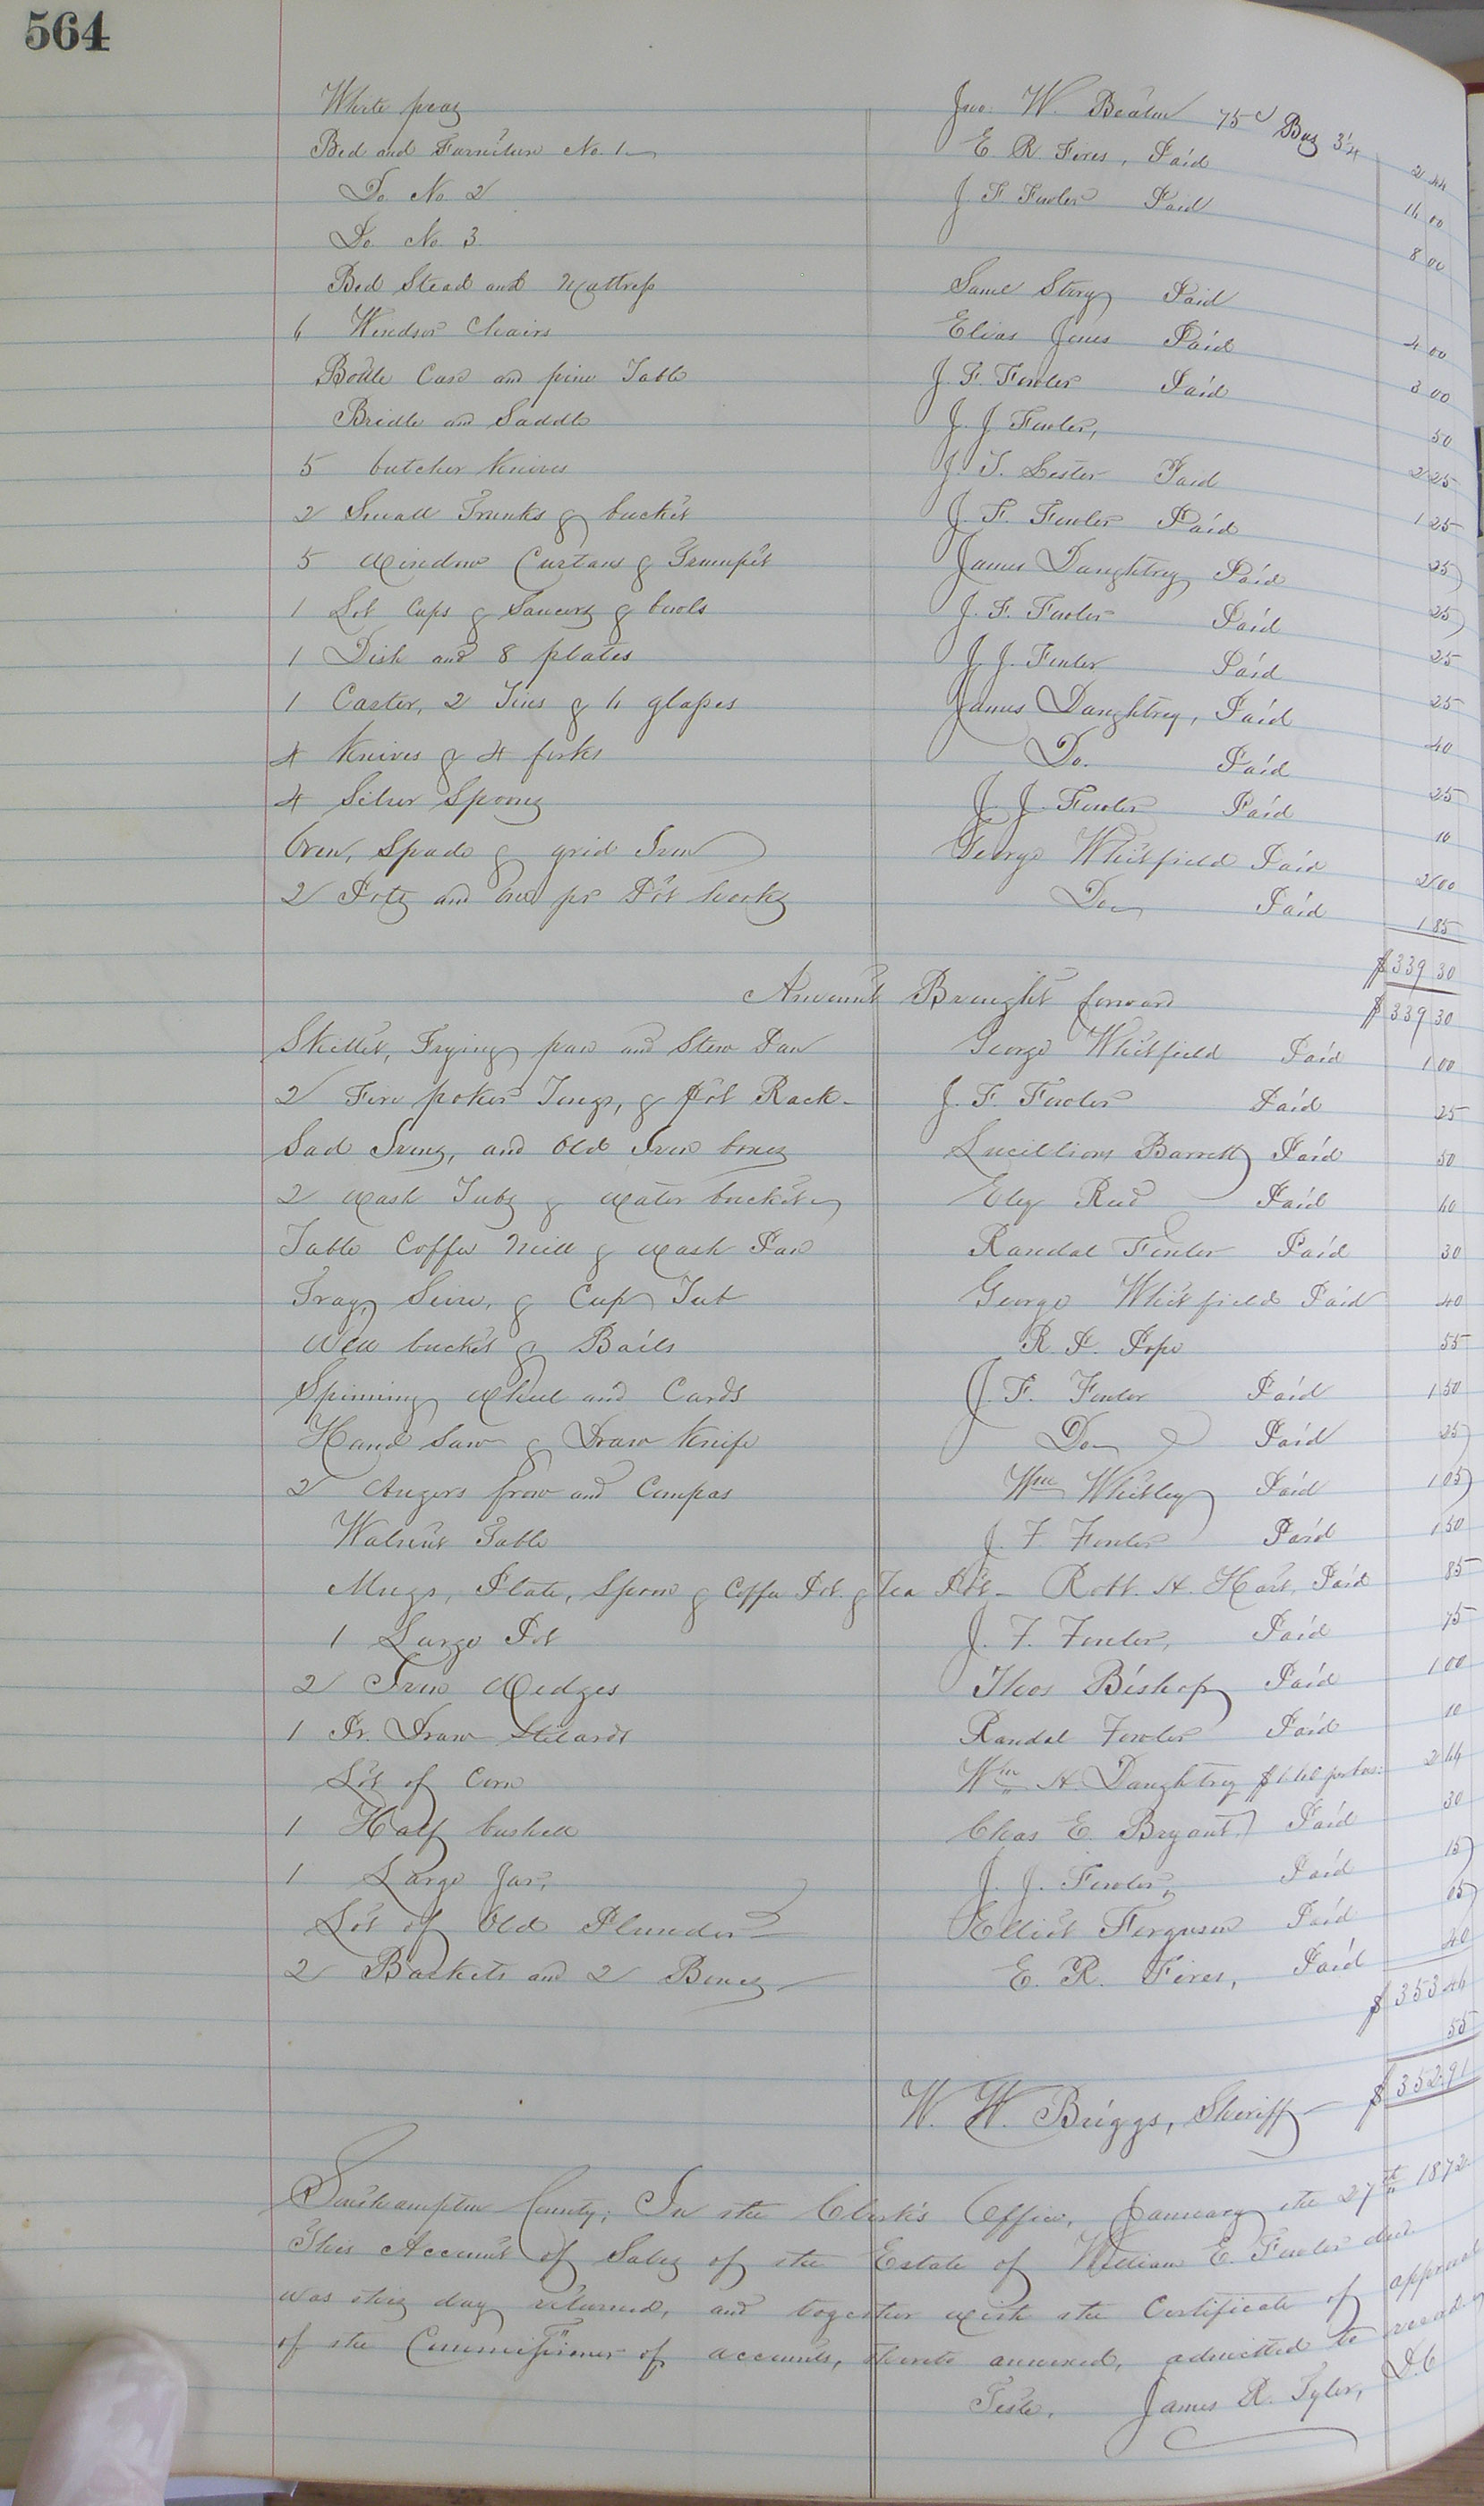 564
White peas Jno. W. Beaton 75c Bus 3¼ 2 44
Bed and Furniture No. 1 E. R. Fires, Paid 14 00
Do No. 2 J. F. Fowler Paid 8 00
Do No 3
Bed Stead and Mattress Saml Story Paid 4 00
6 Windsor Chairs Elias Jones Paid 3 00
Bottle Case and pine Table J. F. Fowler Paid 50
Bridle and Saddle J. J. Fowler, 2 25
5 butcher Knives J. T. Lester Paid 1 25
2 Small Trunks & bucket J. F. Fowler Paid 25
5 Window Curtans & Trumpet James Daughtrey Paid 25
1 Lot Cups & Saucers & bowls J. F. Fowler Paid 25
1 Dish and 8 plates J. J. Fowler Paid 25
1 Caster, 2 Tins & 4 glasses James Daughtrey, Paid 40
4 Knives & 4 forks Do. Paid 25
4 Silver Spoons J. J. Fowler Paid 10
Oven, Spade & grid Iron George Whitfield Paid 2 00
2 Pots and one pr Pot hooks Do Paid 1 85
$339 30
Amount Brought forward $339 30
Skillet, Frying pan and Stew Pan George Whitfield Paid 1 00
2 Fire poker Tongs, & Pot Rack J. F. Fowler Paid 25
Sad Irons, and Old Iron boxes Lucillious Barrett Paid 50
2 Wash Tubs & Water bucket Eley Reed Paid 60
Table Coffee Mill & Wash Pan Randal Fowler Paid 30
Tray, Seive, & Cup Tub George Whitfield Paid 40
Well bucket & Bails R. P. Pope 55
Spinning Wheel and Cards J. F. Fowler Paid 1 50
Hand Saw & Draw Knife Do Paid 25
2 Augers frow and Compas Wm Whitley Paid 1 05
Walnut Table J. F. Fowler Paid 1 50
Mugs, Plate, Spoon & Coffee Pot & Tea Pot Robt. H. Hart, Paid 85
1 Large Pot J. F. Fowler, Paid 75
2 Iron Wedges Thos Bishop Paid 1 00
1 Pr. Draw Stilards Randal Fowler Paid 10
Lot of Corn Wm H. Daughtrey per bus: 2 64
1 Half bushell Chas E. Bryant, Paid 30
1 Large Jar, J. J. Fowler, Paid 15
Lot of Old Plunder Elliot Ferguson Paid 05
2 Baskets and 2 Boxes E. R. Fires, Paid 40
$353 46
55
$352.91
W. W. Briggs, Sheriff
Southampton County; In the Clerk's Office, January the 27th 1872
This Account of Sales of the Estate of William E. Fowler decd
was this day returned, and together with the Certificate of approval
of the Commissioner of accounts, thereto annexed, admitted to record.
Teste, James R. Tyler, D.C